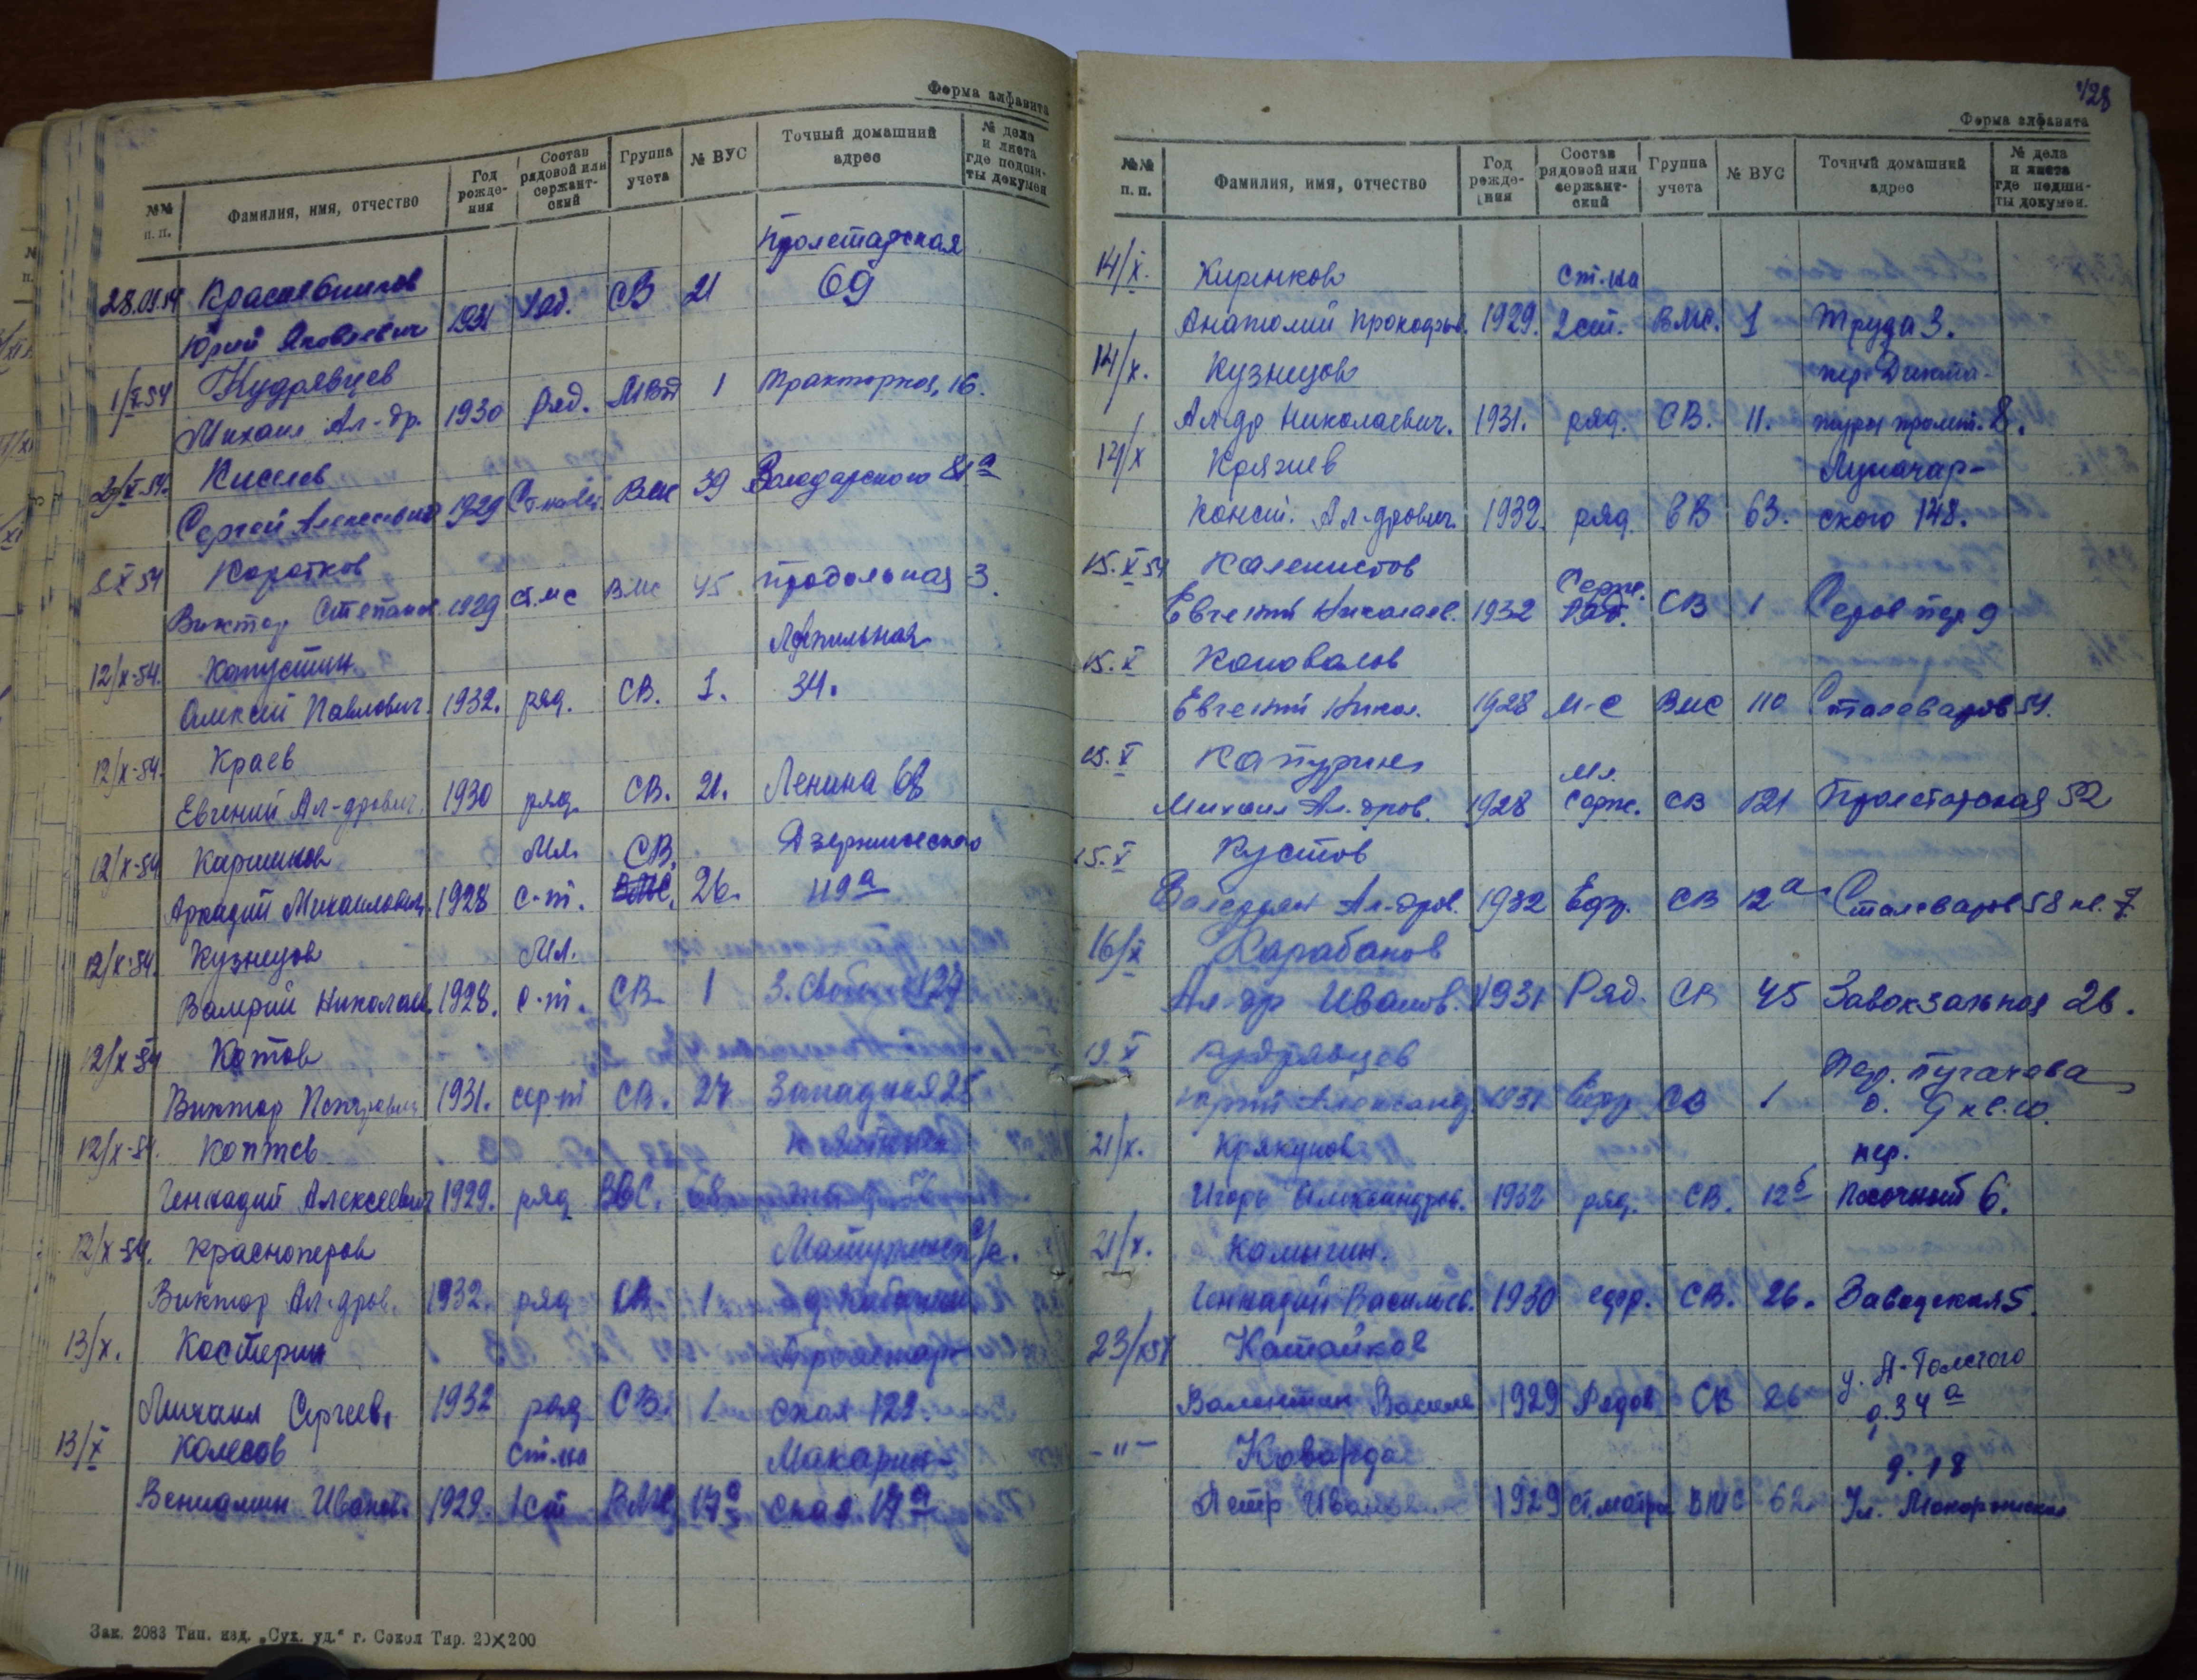 Форма алфавита
№№ п. п. Фамилия, имя, отчество Год рожде- ния Состав рядовой или сержант- ский Группа учета № ВУС Точный домашний адрес № дела и листа где подши- ты докумен
Пролетарская
28.09.54 Красавчиков 69
Юрий Яковлевич 1931 ряд. СВ 21
1/X-54 Кудрявцев
Михаил Ал-др. 1930 ряд. МВД 1 Тракторная, 16.
2/X-54. Киселев
Сергей Алексеевич 1929 ВМС 39 Володарского 81а
8 X 54 Коротков
Виктор Степанов. 1929 ст.мс ВМС 45 продольная 3.
12/X-54. Капустин
Алексей Павлович. 1932. ряд. СВ. 1. 34.
12/X-54. Краев
Евгений Ал-дрович. 1930 ряд. СВ. 21. Ленина 68
12/X-54 Мл. СВ. Дзержинского
Аркадий Михаилович. 1928 с-т. ВМС. 26. 119а
12/X-54. Кузнецов Мл.
Валерий Николаев. 1928. с-т. СВ. 1
12/X-54 Котов
Виктор 1931. сер-т СВ. 27 Западная 25
12/X-54. Коптев
Геннадий Алексеевич 1929. ряд ВВС.
12/X-54. Красноперов
Виктор Ал-дров. 1932. ряд СВ. 1
13/X. Костерин Пролетар-
Михаил Сергеев. 1932 ряд СВ. 1. ская 122.
13/X Колесов Ст.ма Макарин-
Вениамин Иванов. 1929. 1ст ВМС 17а ская 17а
Зак. 2083 Тип. изд. „Сух. уд.“ г. Сокол Тир. 20×200
128
Форма алфавита
№№ п. п. Фамилия, имя, отчество Год рожде- ния Состав рядовой или сержант- ский Группа учета № ВУС Точный домашний адрес № дела и листа где подши- ты докумен.
14/X. Киренков Ст.ма
Анатолий Прокофьев. 1929. 2ст. ВМС. 1 Труда 3.
14/X. Кузнецов пер. Дикта-
Ал-др Николаевич. 1931. ряд. СВ. 11. туры пролет. 8.
14/X Луначар-
Конст. Ал-дрович. 1932. ряд 63. ского 148.
15.X 54 Каленистов Серж.
Евгений Николаев. 1932 ряд. СВ 1 Серов пер 9
15.X Коновалов
Евгений Никол. 1928 М-с ВМС 110 Сталеваров 54.
15.X Катурин Мл.
Михаил Ал-дров. 1928 Серж. СВ 121 Пролетарская 52
15.X Кустов
Валерьян Ал-дров. 1932 Ефр. СВ 12а Сталеваров 58 кв. 7
16/X Карабанов
Ал-др Иванов. 1931 Ряд. СВ 45 Завокзальная 26.
19.X Кудрявцев Пер. Пугачева
Юрий Александ. 1931 Ефр СВ 1 д. 9 кв. 10.
21/X. Крякунов пер.
Игорь Александров. 1932 ряд. СВ. 12б Песочный 6.
21/X. Калинин.
Геннадий Васильев. 1930 ефр. СВ. 26. Заводская 5.
23/X 54 Катайков у. А-Толстого
Валентин Василье 1929 Рядов СВ 26 д. 34а
-"- Коварда д. 18
Петр Иван 1929 ст.матро ВМС 62. Ул.